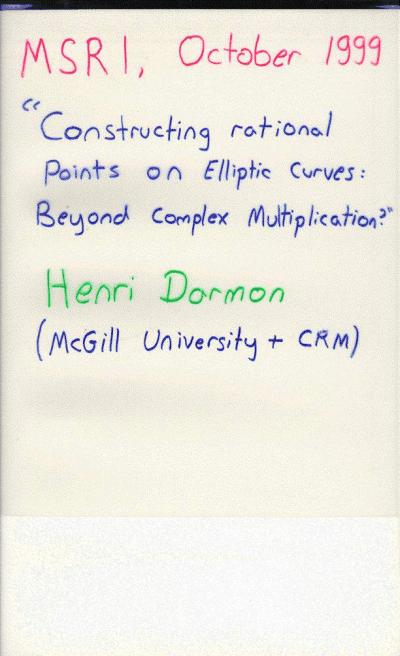 MSRI, October 1999
"Constructing rational
Points on Elliptic Curves:
Beyond Complex Multiplication?"
Henri Darmon
(McGill University + CRM)